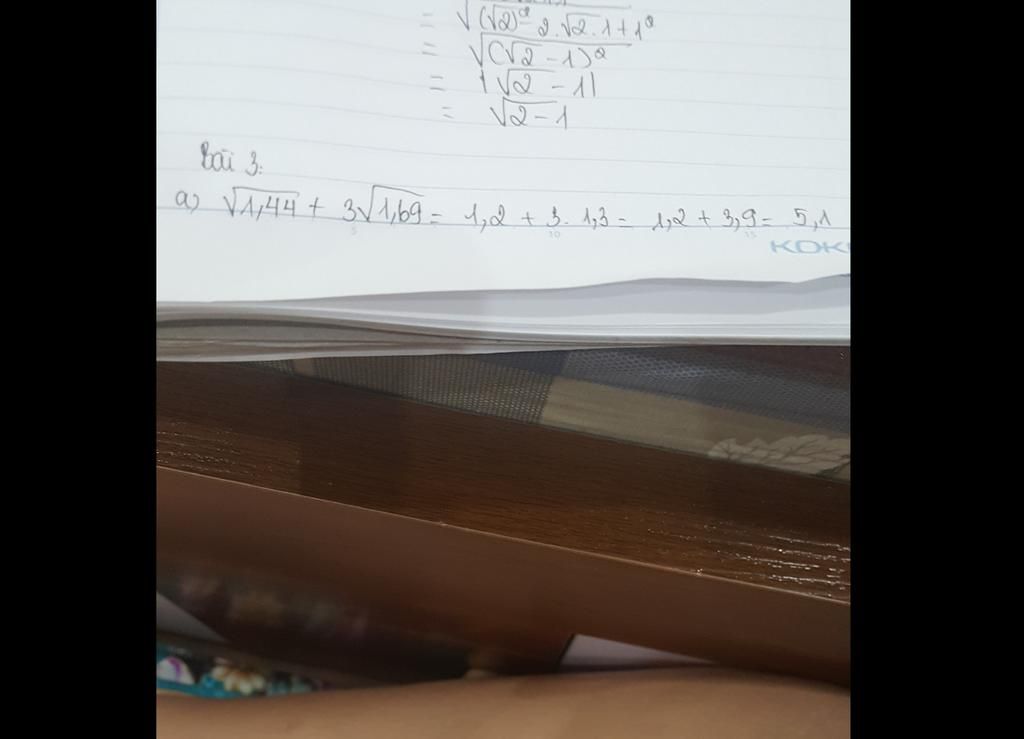 = √((√2)² - 2.√2.1+1²
= √(√2 - 1)²
= |√2 - 1|
= √2-1
Bài 3:
a) √1,44 + 3√1,69 = 1,2 + 3. 1,3 = 1,2 + 3,9 = 5,1
5 10 15
KOK